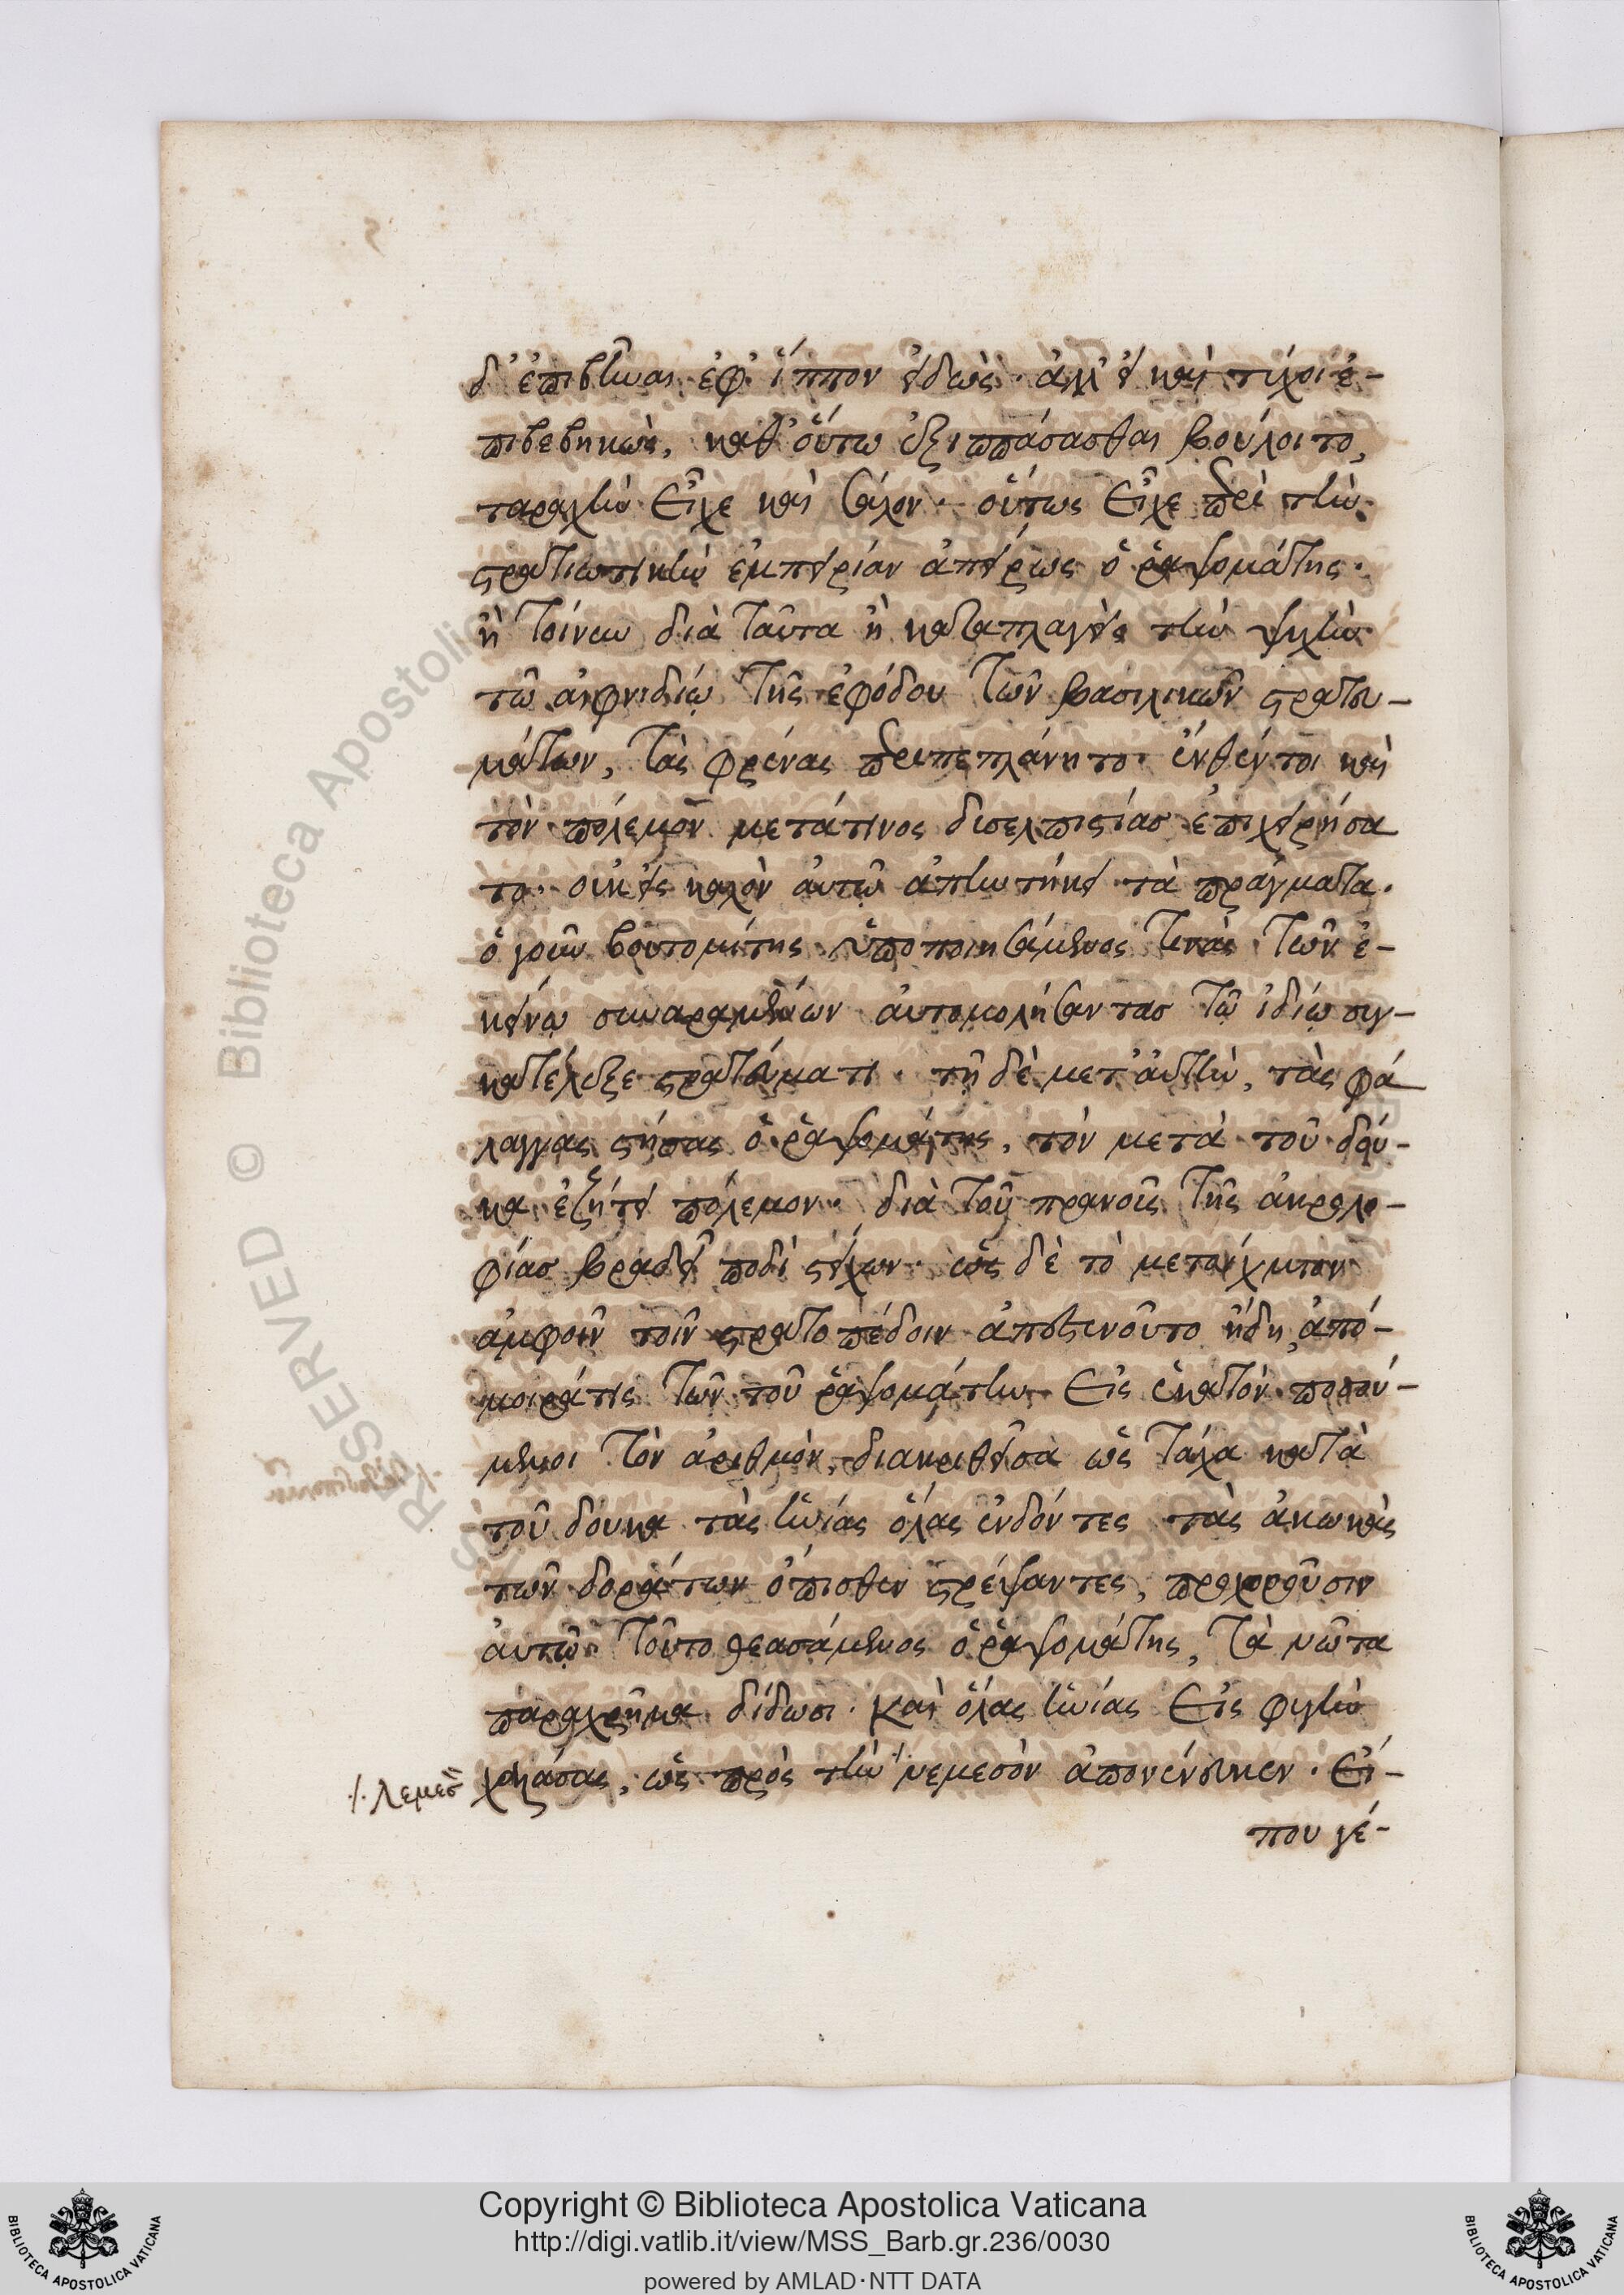 δ' ἐπιβῆναι ἐφ' ἵππον εἰδὼς· ἀλλ' εἰ καὶ τύχοι ἐ-
πιβεβηκὼς, καθ' οὕτω ἐξιππάσασθαι βούλοιτο,
ταραχὴν εἶχε καὶ σάλον· οὕτως εἶχε περὶ τὴν
στρατιωτικὴν ἐμπειρίαν ἀπείρως ὁ ῥαψομάτης·
ἢ τοίνυν διὰ ταῦτα ἢ καταπλαγεὶς τὴν ψυχὴν
τῶ αἰφνιδίῳ τῆς ἐφόδου τῶν βασιλικῶν στρατευ-
μάτων, τὰς φρένας περιπεπλάνητο· ἐνθέντοι καὶ
τὸν πόλεμον μετάτινος δισελπιστίασ ἐπιχειρήσα
το· οὐκ εἰς καλὸν ἀυτῷ ἀπηντήκει τὰ πράγματα.
ὁ γοῦν βουτομίτης ὑποποιησάμενος τινὰς τῶν ἐ-
κείνῳ συναραμένων ἀυτομολήσαντασ τῷ ἰδίῳ συγ-
κατέλεξε στρατεύματι. τῇ δὲ μετ' ἀυτὴν, τὰς φά
λαγγας στήσας ὁ ῥαψομάτης, τὸν μετὰ τοῦ δού-
κα ἐζήτει πόλεμον· διὰ τοῦ πρανοῦς τῆς ἀκρολο-
φίασ βραδεῖ ποδὶ στείχων· ὡς δὲ τὸ μεταίχμιον
ἀμφοῖν τοῖν στρατοπέδοιν ἀπεστενοῦτο ἤδη, ἀπό-
μοιράτις τῶν τοῦ ῥαψομάτην εἰς ἑκατὸν ποσού-
μενοι τὸν ἀριθμὸν, διακριθεῖσα ὡς τάχα κατὰ
τοῦ δούκα τὰς ἡνίας ὅλας ἐνδόντες τὰς ἀκωκὰς
τῶν δοράτων ὄπισθεν στρέψαντες, προχωροῦσιν
ἀυτῷ· τοῦτο θεασάμενος ὁ ῥαψομάτης, τὰ νῶτα
παραχρῆμα δίδωσι· καὶ ὅλας ἡνίας εἰς φυγὴν
χαλάσας, ὡς πρὸς τὴν νεμεσὸν ἀπονενόηκεν· εἴ-
./. Λεμεσ
που γέ-
Copyright © Biblioteca Apostolica Vaticana
http://digi.vatlib.it/view/MSS_Barb.gr.236/0030
powered by AMLAD·NTT DATA